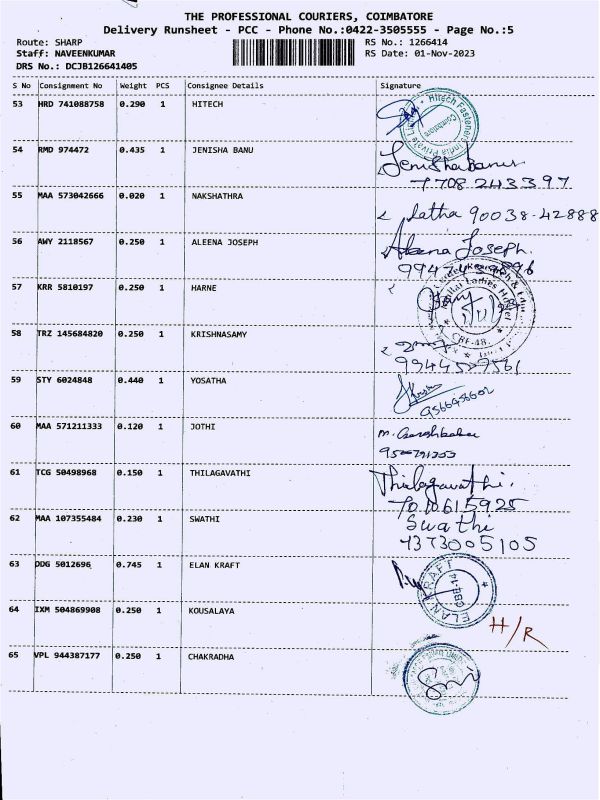 THE PROFESSIONAL COURIERS, COIMBATORE
Delivery Runsheet - PCC - Phone No.:0422-3505555 - Page No.:5
Route: SHARP RS No.: 1266414
Staff: NAVEENKUMAR RS Date: 01-Nov-2023
DRS No.: DCJB126641405
S No Consignment No Weight PCS Consignee Details Signature
53 HRD 741088758 0.290 1 HITECH
54 RMD 974472 0.435 1 JENISHA BANU Jenisha Banu
7708243397
55 MAA 573042666 0.020 1 NAKSHATHRA latha 90038-42888
56 AWY 2118567 0.250 1 ALEENA JOSEPH Aleena Joseph.
57 KRR 5810197 0.250 1 HARNE
CBE-48.
58 TRZ 145684820 0.250 1 KRISHNASAMY
59 STY 6024848 0.440 1 YOSATHA
60 MAA 571211333 0.120 1 JOTHI
61 TCG 50498968 0.150 1 THILAGAVATHI Thilagavathi.
62 MAA 107355484 0.230 1 SWATHI Swathi
7373005105
63 DDG 5012696 0.745 1 ELAN KRAFT
ELAN KRAFT
CBE-14
64 IXM 504869908 0.250 1 KOUSALAYA H/R
65 VPL 944387177 0.250 1 CHAKRADHA